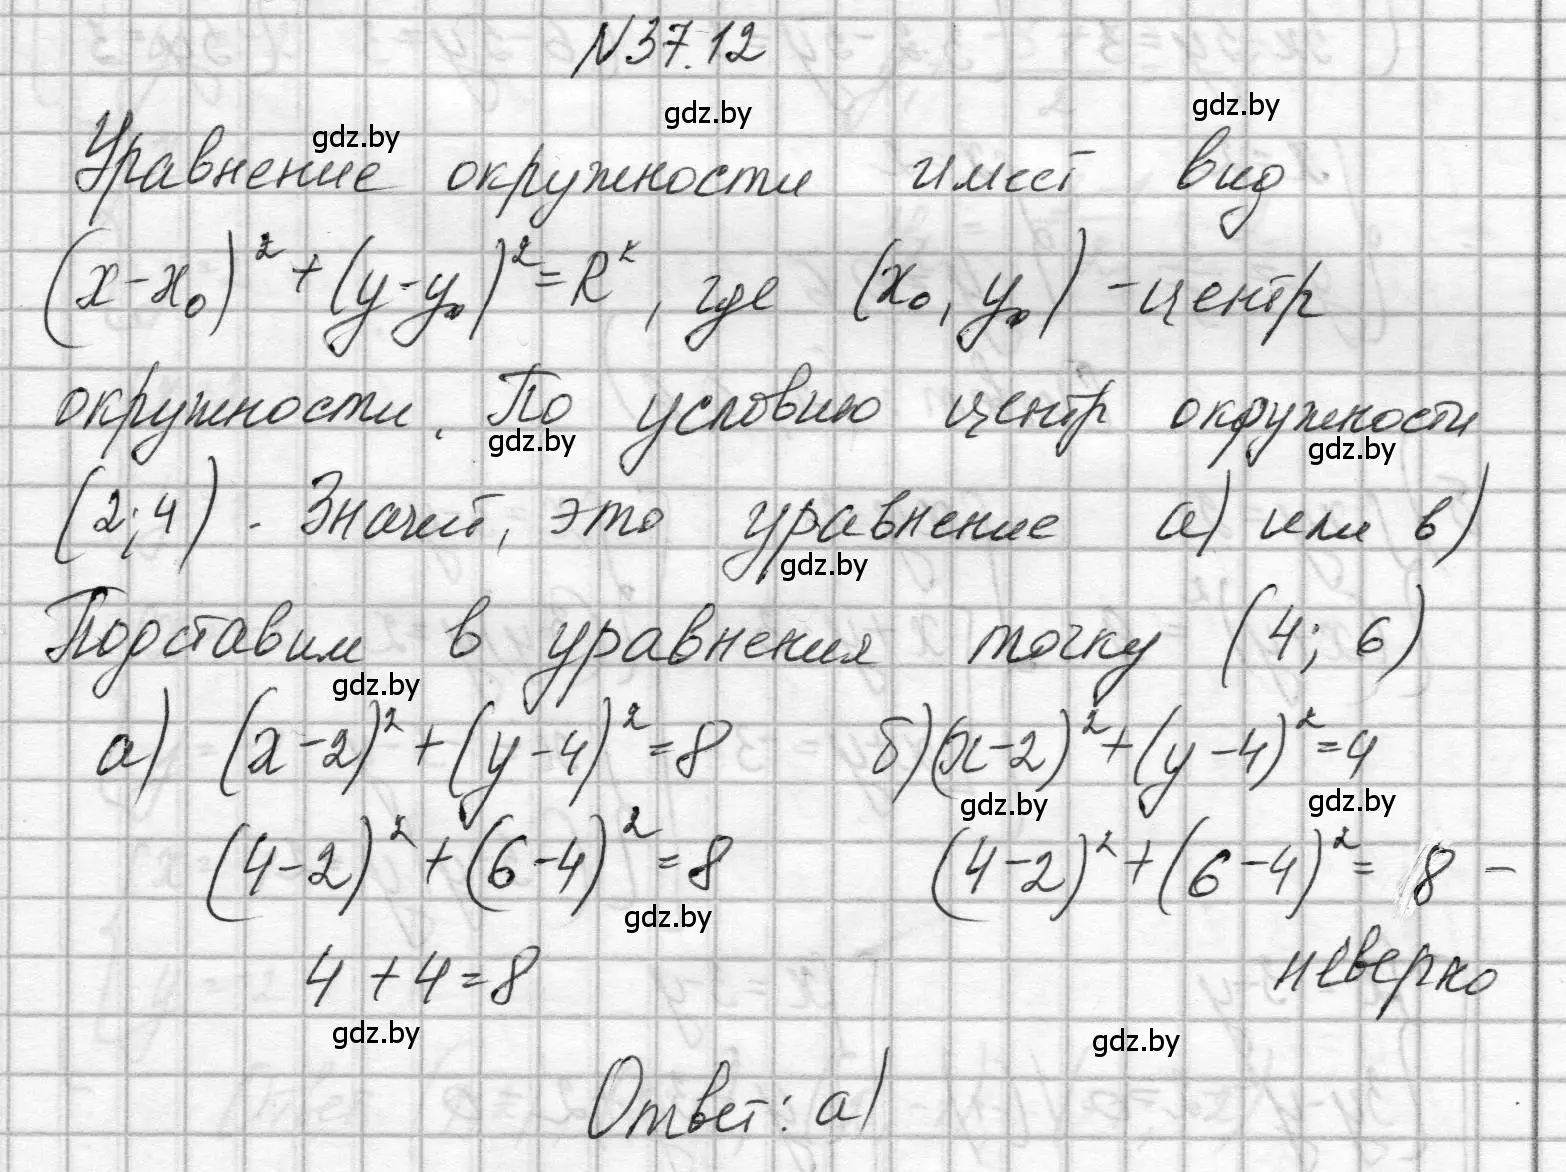 N 37.12
gdz.by gdz.by gdz.by
Уравнение окружности имеет вид
(x-x₀)² + (y-y₀)² = R², где (x₀, y₀) - центр
окружности. По условию центр окружности
gdz.by gdz.by
(2; 4). Значит, это уравнение а) или в)
gdz.by
Подставим в уравнения точку (4; 6)
gdz.by
а) (x-2)² + (y-4)² = 8 б) (x-2)² + (y-4)² = 4
gdz.by gdz.by
(4-2)² + (6-4)² = 8 (4-2)² + (6-4)² = 8 -
gdz.by
4 + 4 = 8 неверно
gdz.by gdz.by
Ответ: а)